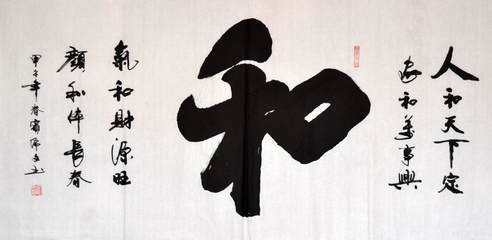 人和天下定
家和萬事興
和
氣和財源旺
顏和体長春
甲午年春